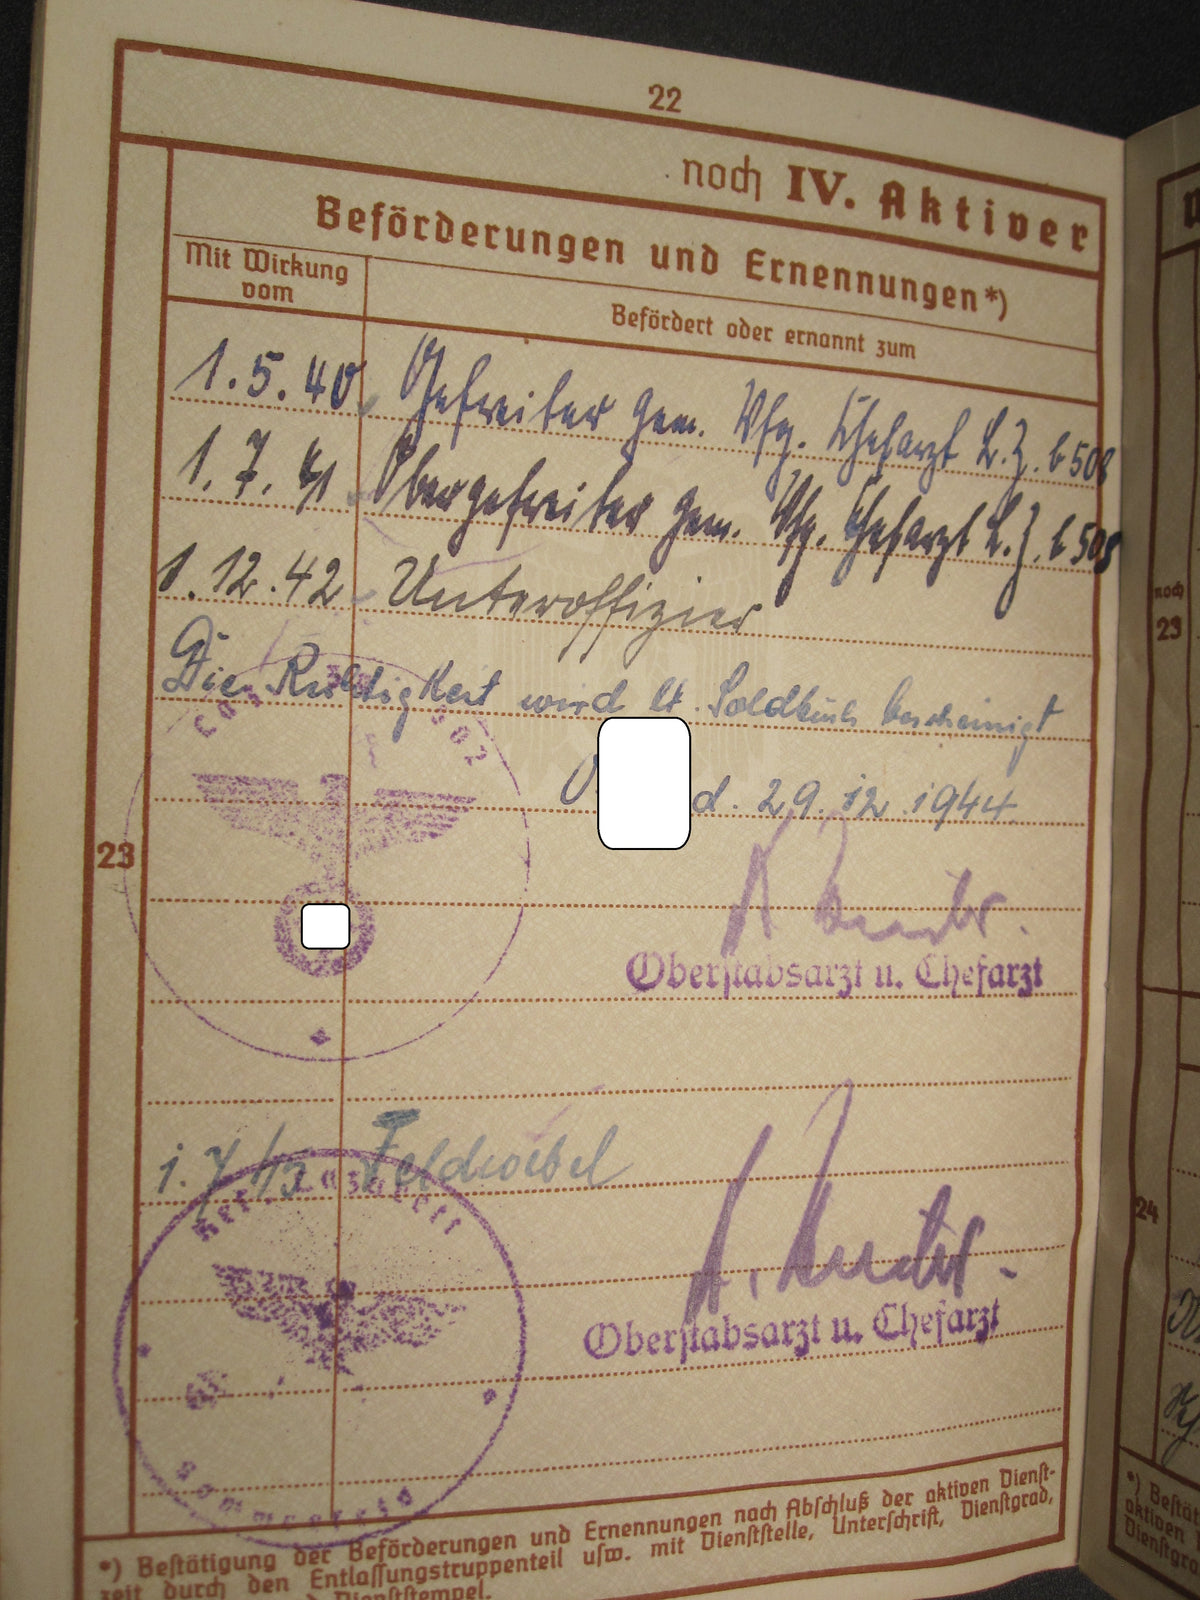 22
noch IV. Aktiver
Beförderungen und Ernennungen*)
Mit Wirkung
vom
Befördert oder ernannt zum
1.5.40. Gefreiter gem. Vfg. Chefarzt L.Z. b 508
1.7.41 Obergefreiter gem. Vfg. Chefarzt L.Z. b 508
1.12.42 Unteroffizier
Die Richtigkeit wird lt. Soldbuch bescheinigt
d. 29.12.1944
23
Oberstabsarzt u. Chefarzt
1.7.43 Feldwebel
Res. Lazarett
Oberstabsarzt u. Chefarzt
*) Bestätigung der Beförderungen und Ernennungen nach Abschluß der aktiven Dienst-
zeit durch den Entlassungstruppenteil usw. mit Dienststelle, Unterschrift, Dienstgrad,
Dienststempel.
noch
23
24
*) Bestät
aktiven
Dienstgra